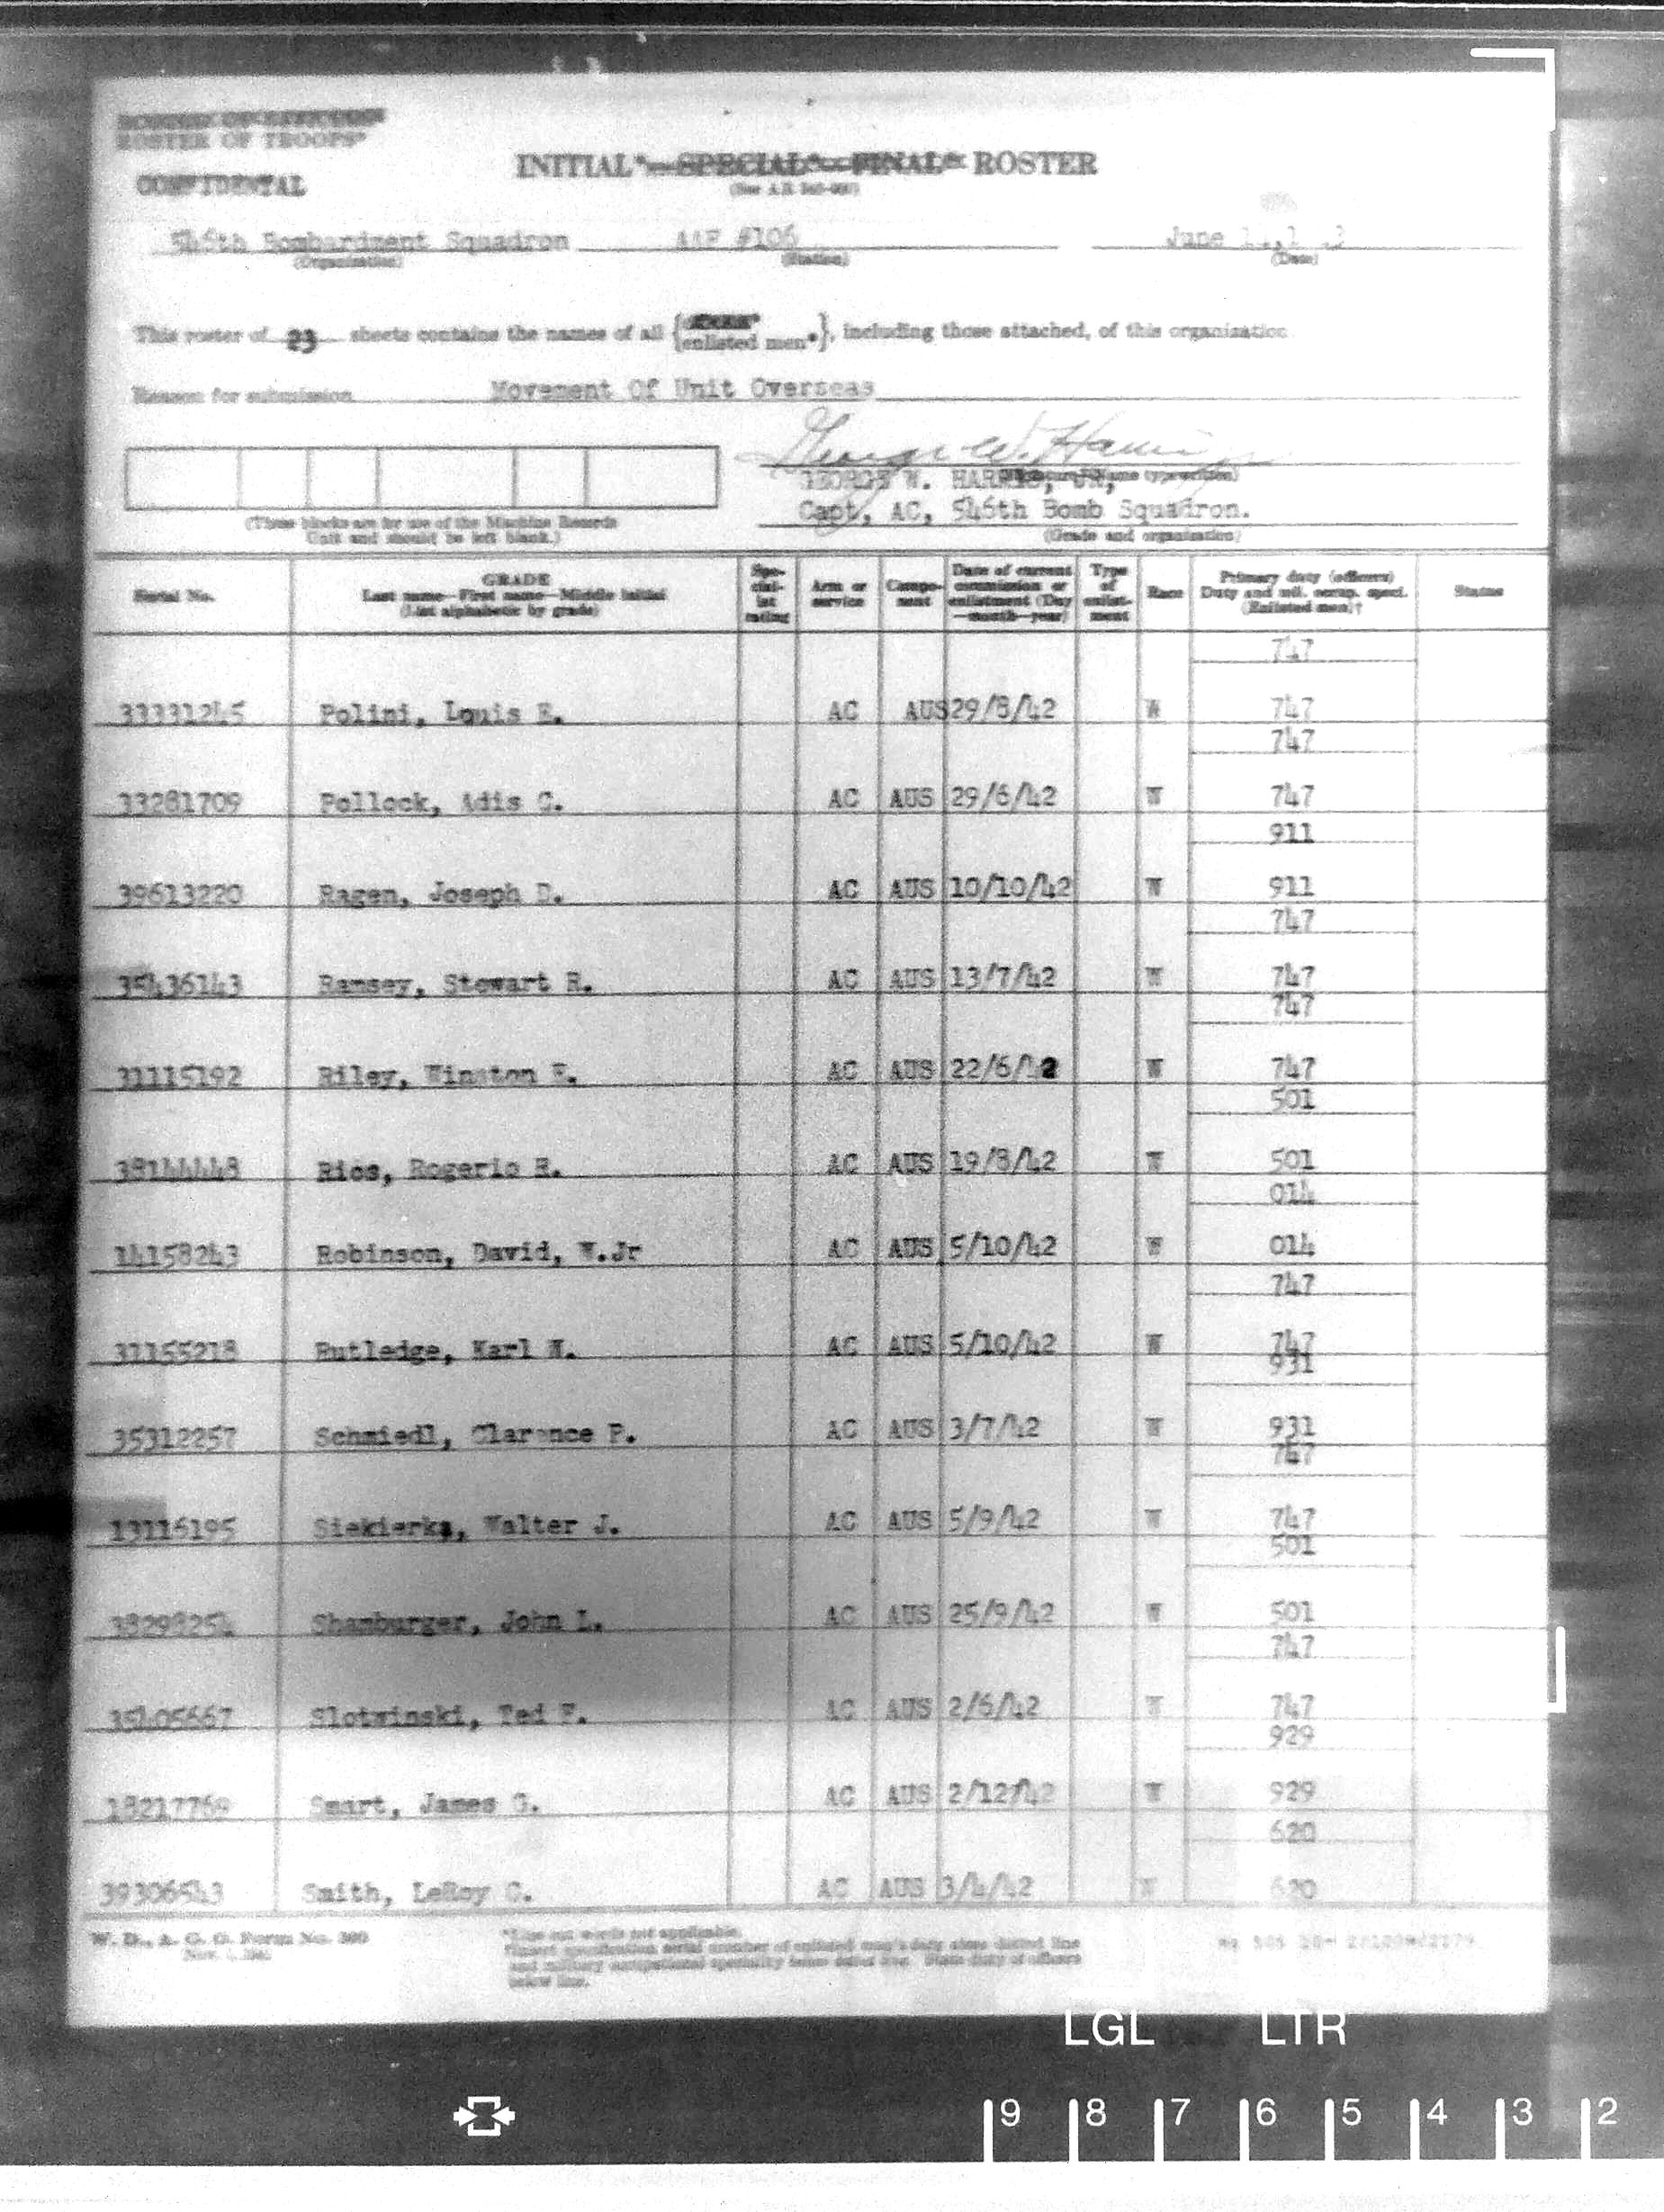 ROSTER OF TROOPS*
CONFIDENTAL
INITIAL*—SPECIAL*—FINAL* ROSTER
(See A.R. 345-900)
546th Bombardment Squadron AAF #106 June
(Organization) (Station) (Date)
This roster of 23 sheets contains the names of all {enlisted men*}, including those attached, of this organization
Reason for submission Movement Of Unit Overseas
George W. Harris
GEORGE W. HARRIS, JR, (Signature) (Name typewritten)
Capt, AC, 546th Bomb Squadron.
(These blocks are for use of the Machine Records
Unit and should be left blank.)
(Grade and organization)
Serial No. GRADE Last name—First name—Middle initial (List alphabetic by grade) Spe-cial-ist rating Arm or service Compo-nent Date of current commission or enlistment (Day—month—year) Type of enlist-ment Race Primary duty (officers) Duty and mil. occup. speci. (Enlisted men)† Status
747
33331245 Polini, Louis E. AC AUS 29/8/42 W 747
747
33281709 Pollock, Adis C. AC AUS 29/6/42 W 747
911
39613220 Ragen, Joseph D. AC AUS 10/10/42 W 911
747
35436143 Ramsey, Stewart R. AC AUS 13/7/42 W 747
747
31115192 Riley, Winston F. AC AUS 22/6/42 W 747
501
38144448 Rios, Rogerio R. AC AUS 19/8/42 W 501
014
14158243 Robinson, David, W.Jr AC AUS 5/10/42 W 014
747
31155218 Rutledge, Karl W. AC AUS 5/10/42 W 747
931
35312257 Schmiedl, Clarence P. AC AUS 3/7/42 W 931
747
13116195 Siekierka, Walter J. AC AUS 5/9/42 W 747
501
38298254 Shamburger, John L. AC AUS 25/9/42 W 501
747
35405667 Slotwinski, Ted F. AC AUS 2/6/42 W 747
929
18217769 Smart, James G. AC AUS 2/12/42 W 929
620
39306543 Smith, LeRoy C. AC AUS 3/4/42 W 620
W. D., A. G. O. Form No. 300
*Line out words not applicable.
†Insert specification serial number of enlisted man's duty above dotted line
and military occupational specialty below dotted line. State duty of officers
below line.
LGL LTR
9 8 7 6 5 4 3 2